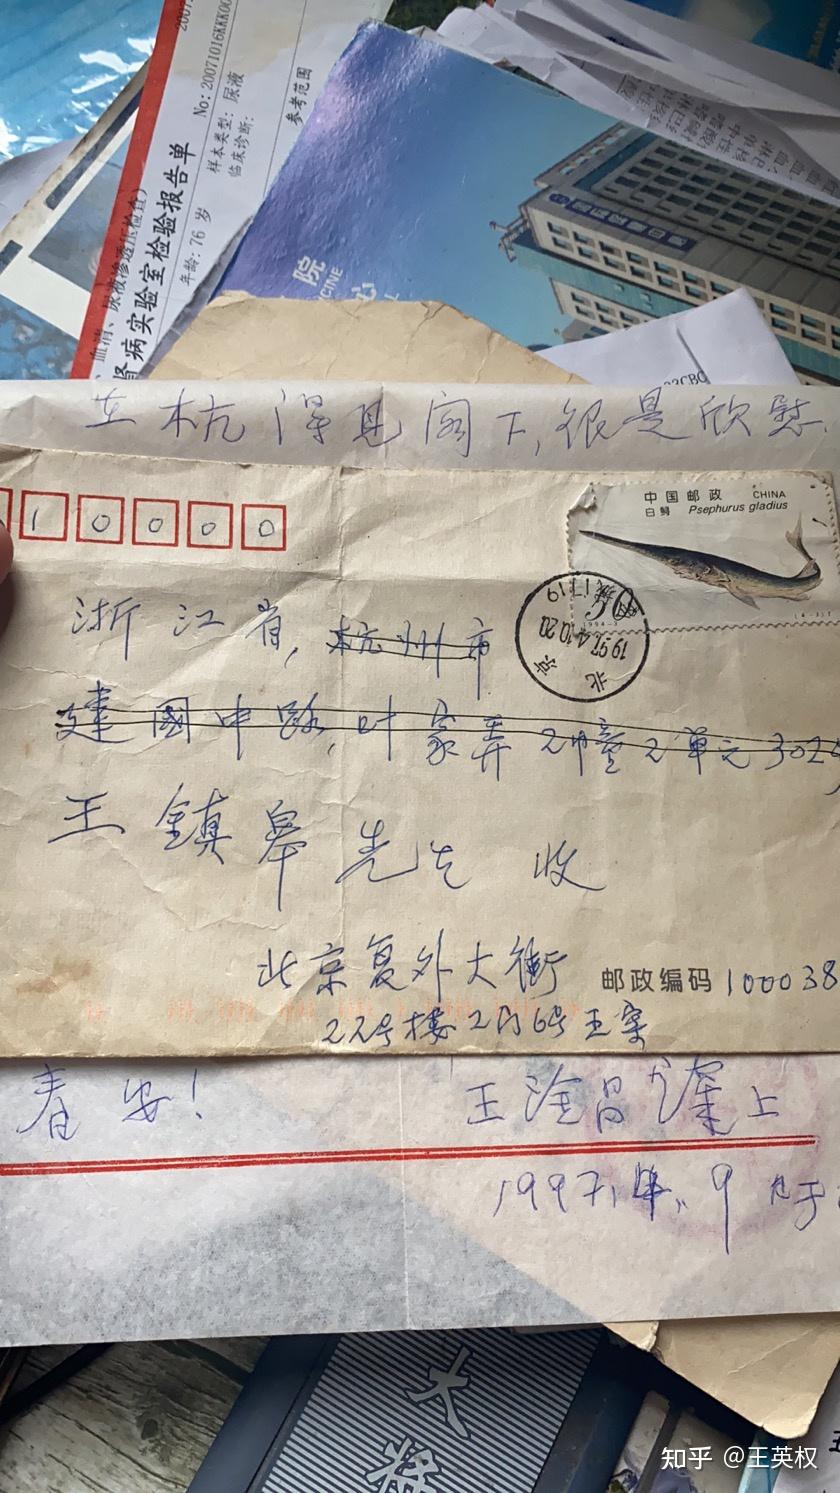 2007
No: 20071016KKK00
样本类型: 尿液
临床诊断:
参考范围
血清、尿液渗透压检查)
肾病实验室检验报告单
年龄: 76 岁
院
心
在杭得见阁下,很是欣慰.
1 0 0 0 0
中国邮政 CHINA
白鲟 Psephurus gladius
1997.4.10.20
北京
浙江省,杭州市
建國中路,叶家弄2幢2单元302
王鎮皋先生 收
北京复外大街
邮政编码100038
22号楼2门6号王寄
春安!
王淦昌 上
1997,4,9
大
将
知乎 @王英权